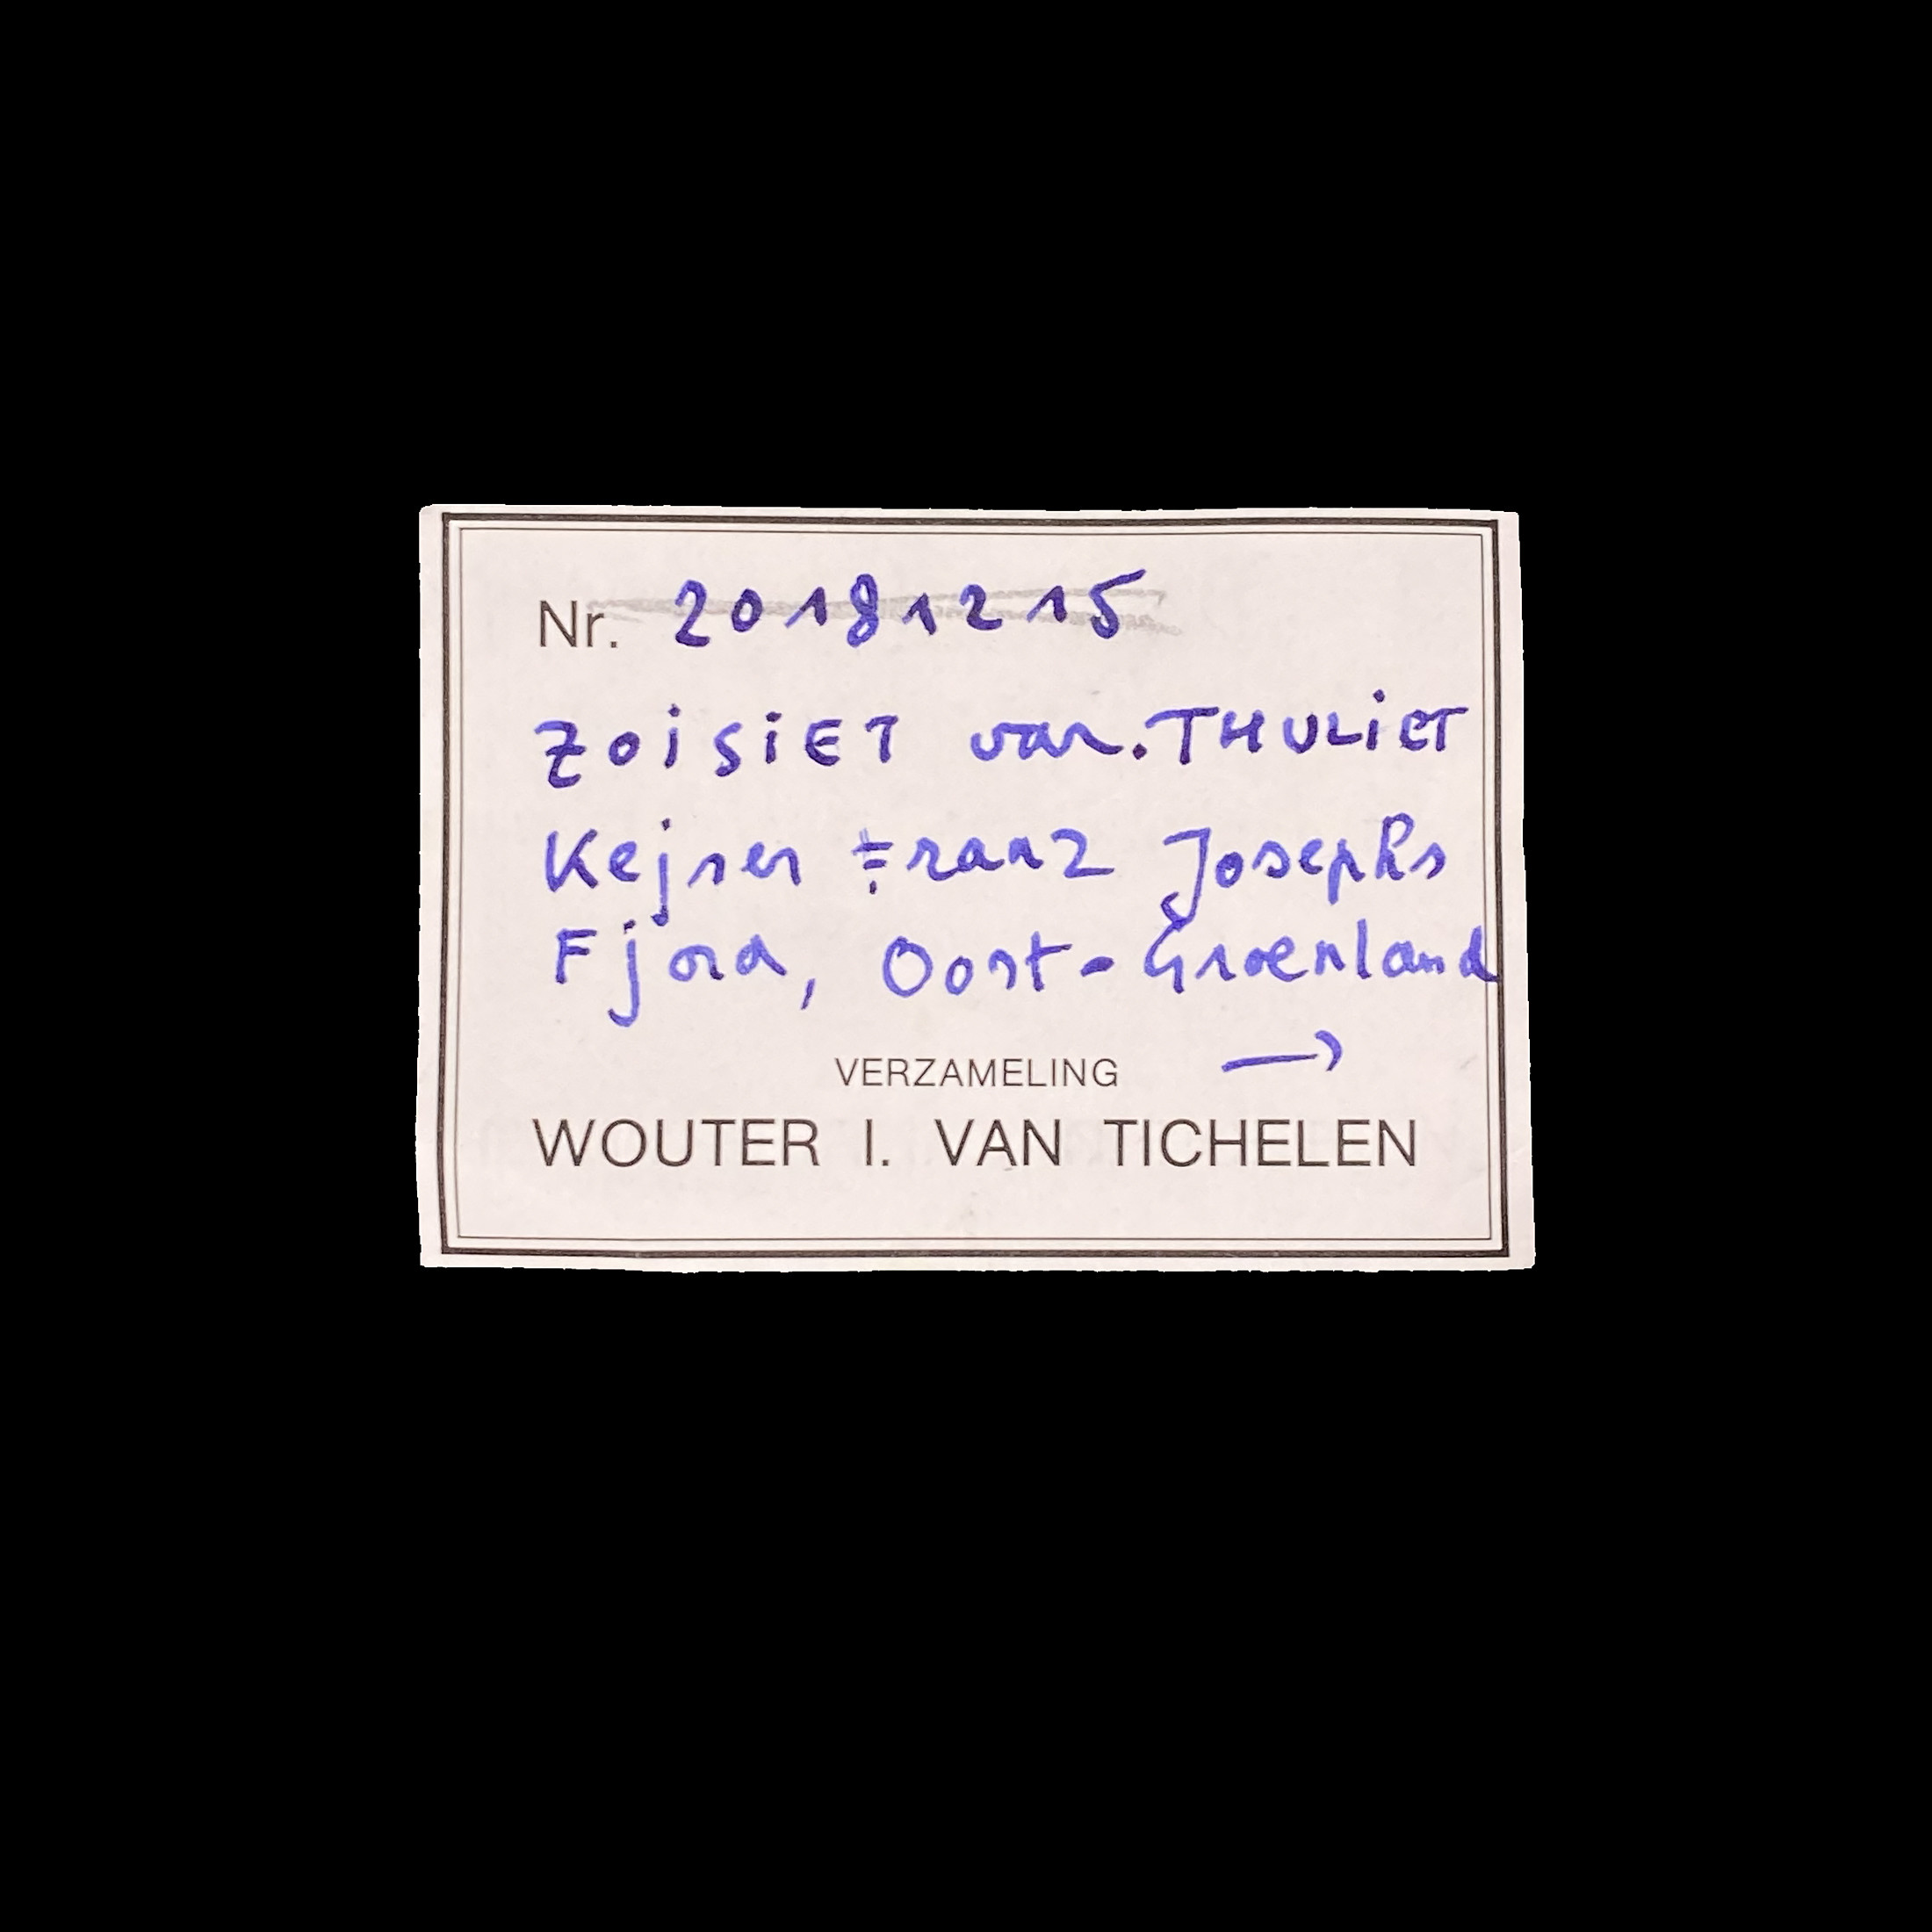 Nr. 20181215
ZOiSiET var. THULiET
Kejser Franz Josephs
Fjord, Oost-Groenland
→
VERZAMELING
WOUTER I. VAN TICHELEN